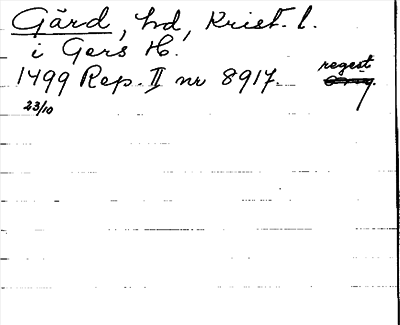 Gärd, hd, Krist. l.
i Gers H.
1499 Rep. II nr 8917. regest
23/10